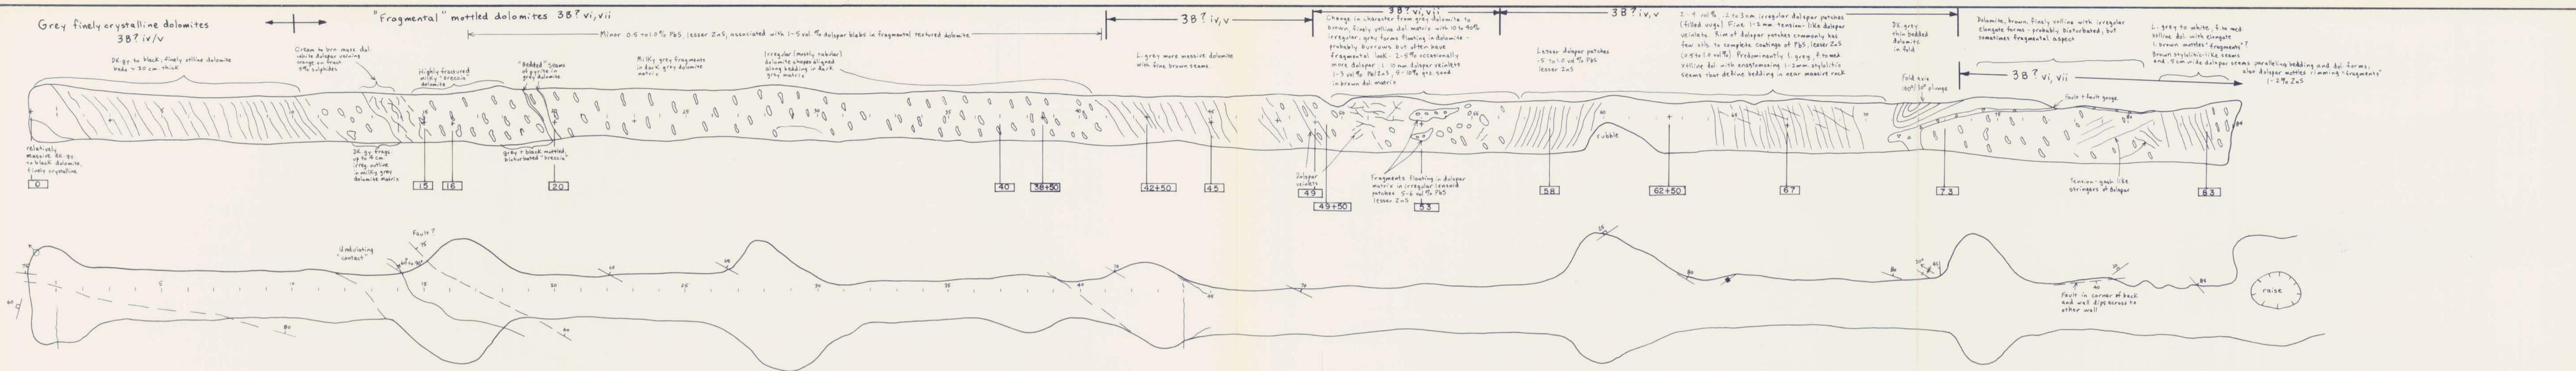 Grey finely crystalline dolomites
3B? iv/v
"Fragmental" mottled dolomites 3B? vi,vii
Minor 0.5 to 1.0% PbS, lesser ZnS, associated with 1-5 vol. % dolspar blebs in fragmental textured dolomite
3B? iv,v
3B? vi,vii
3B? iv,v
DK.gy to black, finely xtlline dolomite
beds ~ 20 cm. thick
Cream to brn mass. dol.
white dolspar veining
orange on fract
Highly fractured
milky "breccia"
dolomite
"Bedded" seams
of pyrite in
grey dolomite
Milky grey fragments
in dark grey dolomite
matrix
Irregular (mostly tabular)
dolomite shapes aligned
along bedding in dark
grey matrix
L. grey more massive dolomite
with fine brown seams.
Change in character from grey dolomite to
brown, finely xtlline dol. matrix with 10 to 40%
irregular, grey forms floating in dolomite -
probably burrows but often have
fragmental look. 2-5% occasionally
more dolspar. 1-10 mm. dolspar veinlets
in brown dol. matrix
Lesser dolspar patches
.5 to 1.0 vol % PbS
lesser ZnS
(filled vugs) Fine 1-2 mm. tension-like dolspar
veinlets. Rim of dolspar patches commonly has
few xtls. to complete coatings of PbS, lesser ZnS
(0.5 to 1.0 vol %) Predominantly l. grey, f. to med
xtlline dol. with anastomosing 1-2mm. stylolitic
seams that define bedding in near massive rock
DK.grey
thin bedded
dolomite
in fold
Fold axis
Dolomite, brown, finely xtlline with irregular
elongate forms - probably bioturbated, but
sometimes fragmental aspect
3B? vi, vii
L. grey to white, f. to med
xtlline dol. with elongate
l. brown mottles "fragments"?
Brown stylolitic-like seams
and .5 cm wide dolspar seams paralleling bedding and dol. forms;
also dolspar mottles rimming "fragments"
1-2% ZnS
Fault + fault gouge
rubble
relatively
massive dk.gy.
to black dolomite,
finely crystalline
DK.gy. frags
up to 4 cm.
irreg. outline
in milky grey
dolomite matrix
grey + black mottled,
bioturbated "breccia"
Dolspar
veinlets
Fragments floating in dolspar
matrix in irregular lensoid
patches 5-6 vol % PbS
lesser ZnS
Tension-gash like
stringers of dolspar
0
15
16
20
40
38+50
42+50
45
49
49+50
53
58
62+50
67
73
83
Undulating
"contact"
Fault?
Fault in corner of back
and wall dips across to
other wall
raise